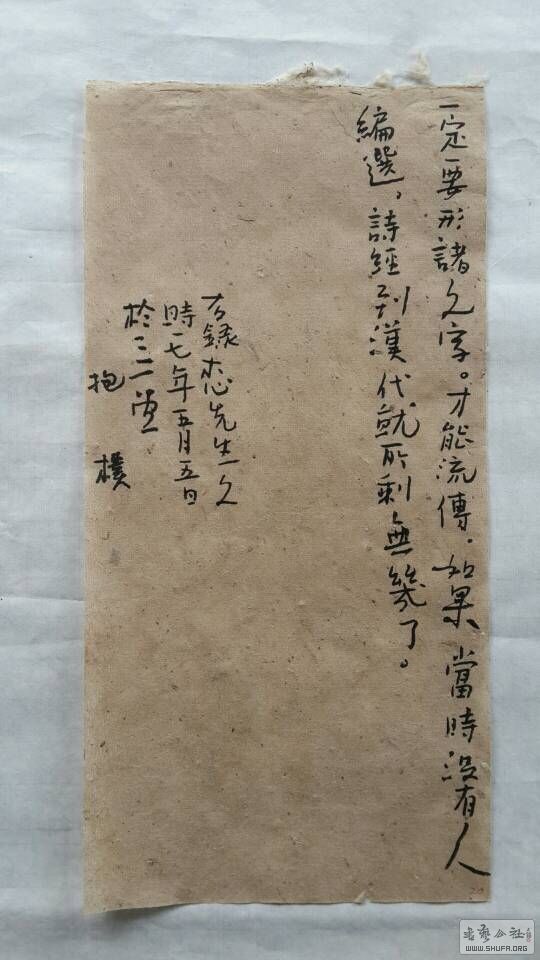 一定要形諸文字。才能流傳，如果當時没有人
編選，詩經到漢代就所剩無幾了。
右錄木心先生文
時一七年五月五日
於三一堂
抱樸
20
書藝公社
WWW.SHUFA.ORG